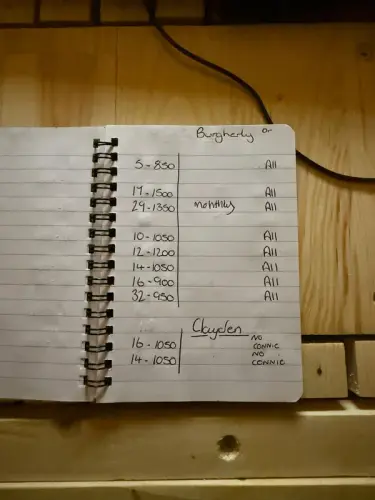 Burgherly Dr
5-850 All
17-1500 All
29-1350 monthly All
10-1050 All
12-1200 All
14-1050 All
16-900 All
32-950 All
Clayden
16-1050 NO CONNIE
14-1050 NO CONNIE